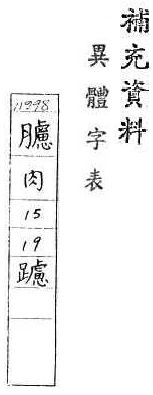 補充資料
異體字表
11998
肉
15
19